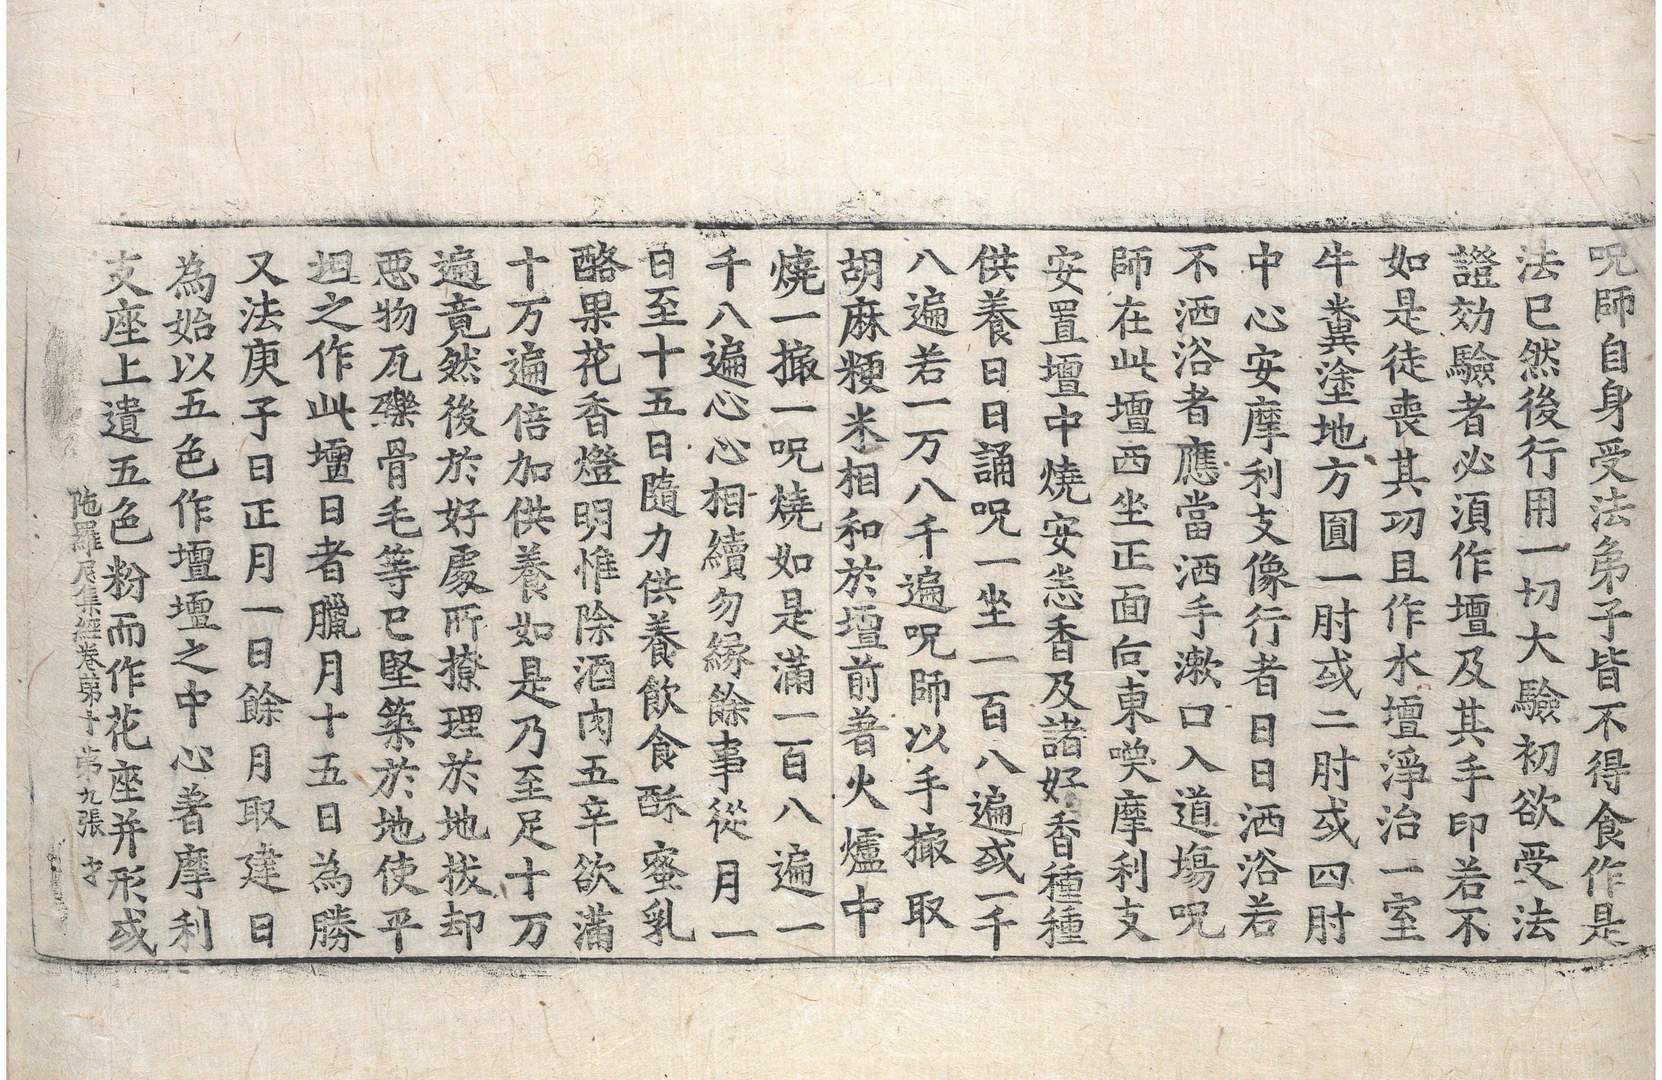 呪師自身受法弟子皆不得食作是
法已然後行用一切大驗初欲受法
證効驗者必須作壇及其手印若不
如是徒喪其功且作水壇淨治一室
牛糞塗地方圓一肘或二肘或四肘
中心安摩利支像行者日日洒浴若
不洒浴者應當洒手漱口入道塲呪
師在此壇西坐正面向東喚摩利支
安置壇中燒安悉香及諸好香種種
供養日日誦呪一坐一百八遍或一千
八遍若一万八千遍呪師以手撮取
胡麻粳米相和於壇前著火爐中
燒一撮一呪燒如是滿一百八遍一
千八遍心心相續勿縁餘事從月一
日至十五日隨力供養飲食酥蜜乳
酪果花香燈明惟除酒肉五辛欲滿
十万遍倍加供養如是乃至足十万
遍竟然後於好處所撩理於地拔却
惡物瓦礫骨毛等已堅築於地使平
坦之作此壇日者臘月十五日為勝
又法庚子日正月一日餘月取建日
為始以五色作壇壇之中心著摩利
支座上遺五色粉而作花座并形或
陁羅尼集經卷第十 第九張 才